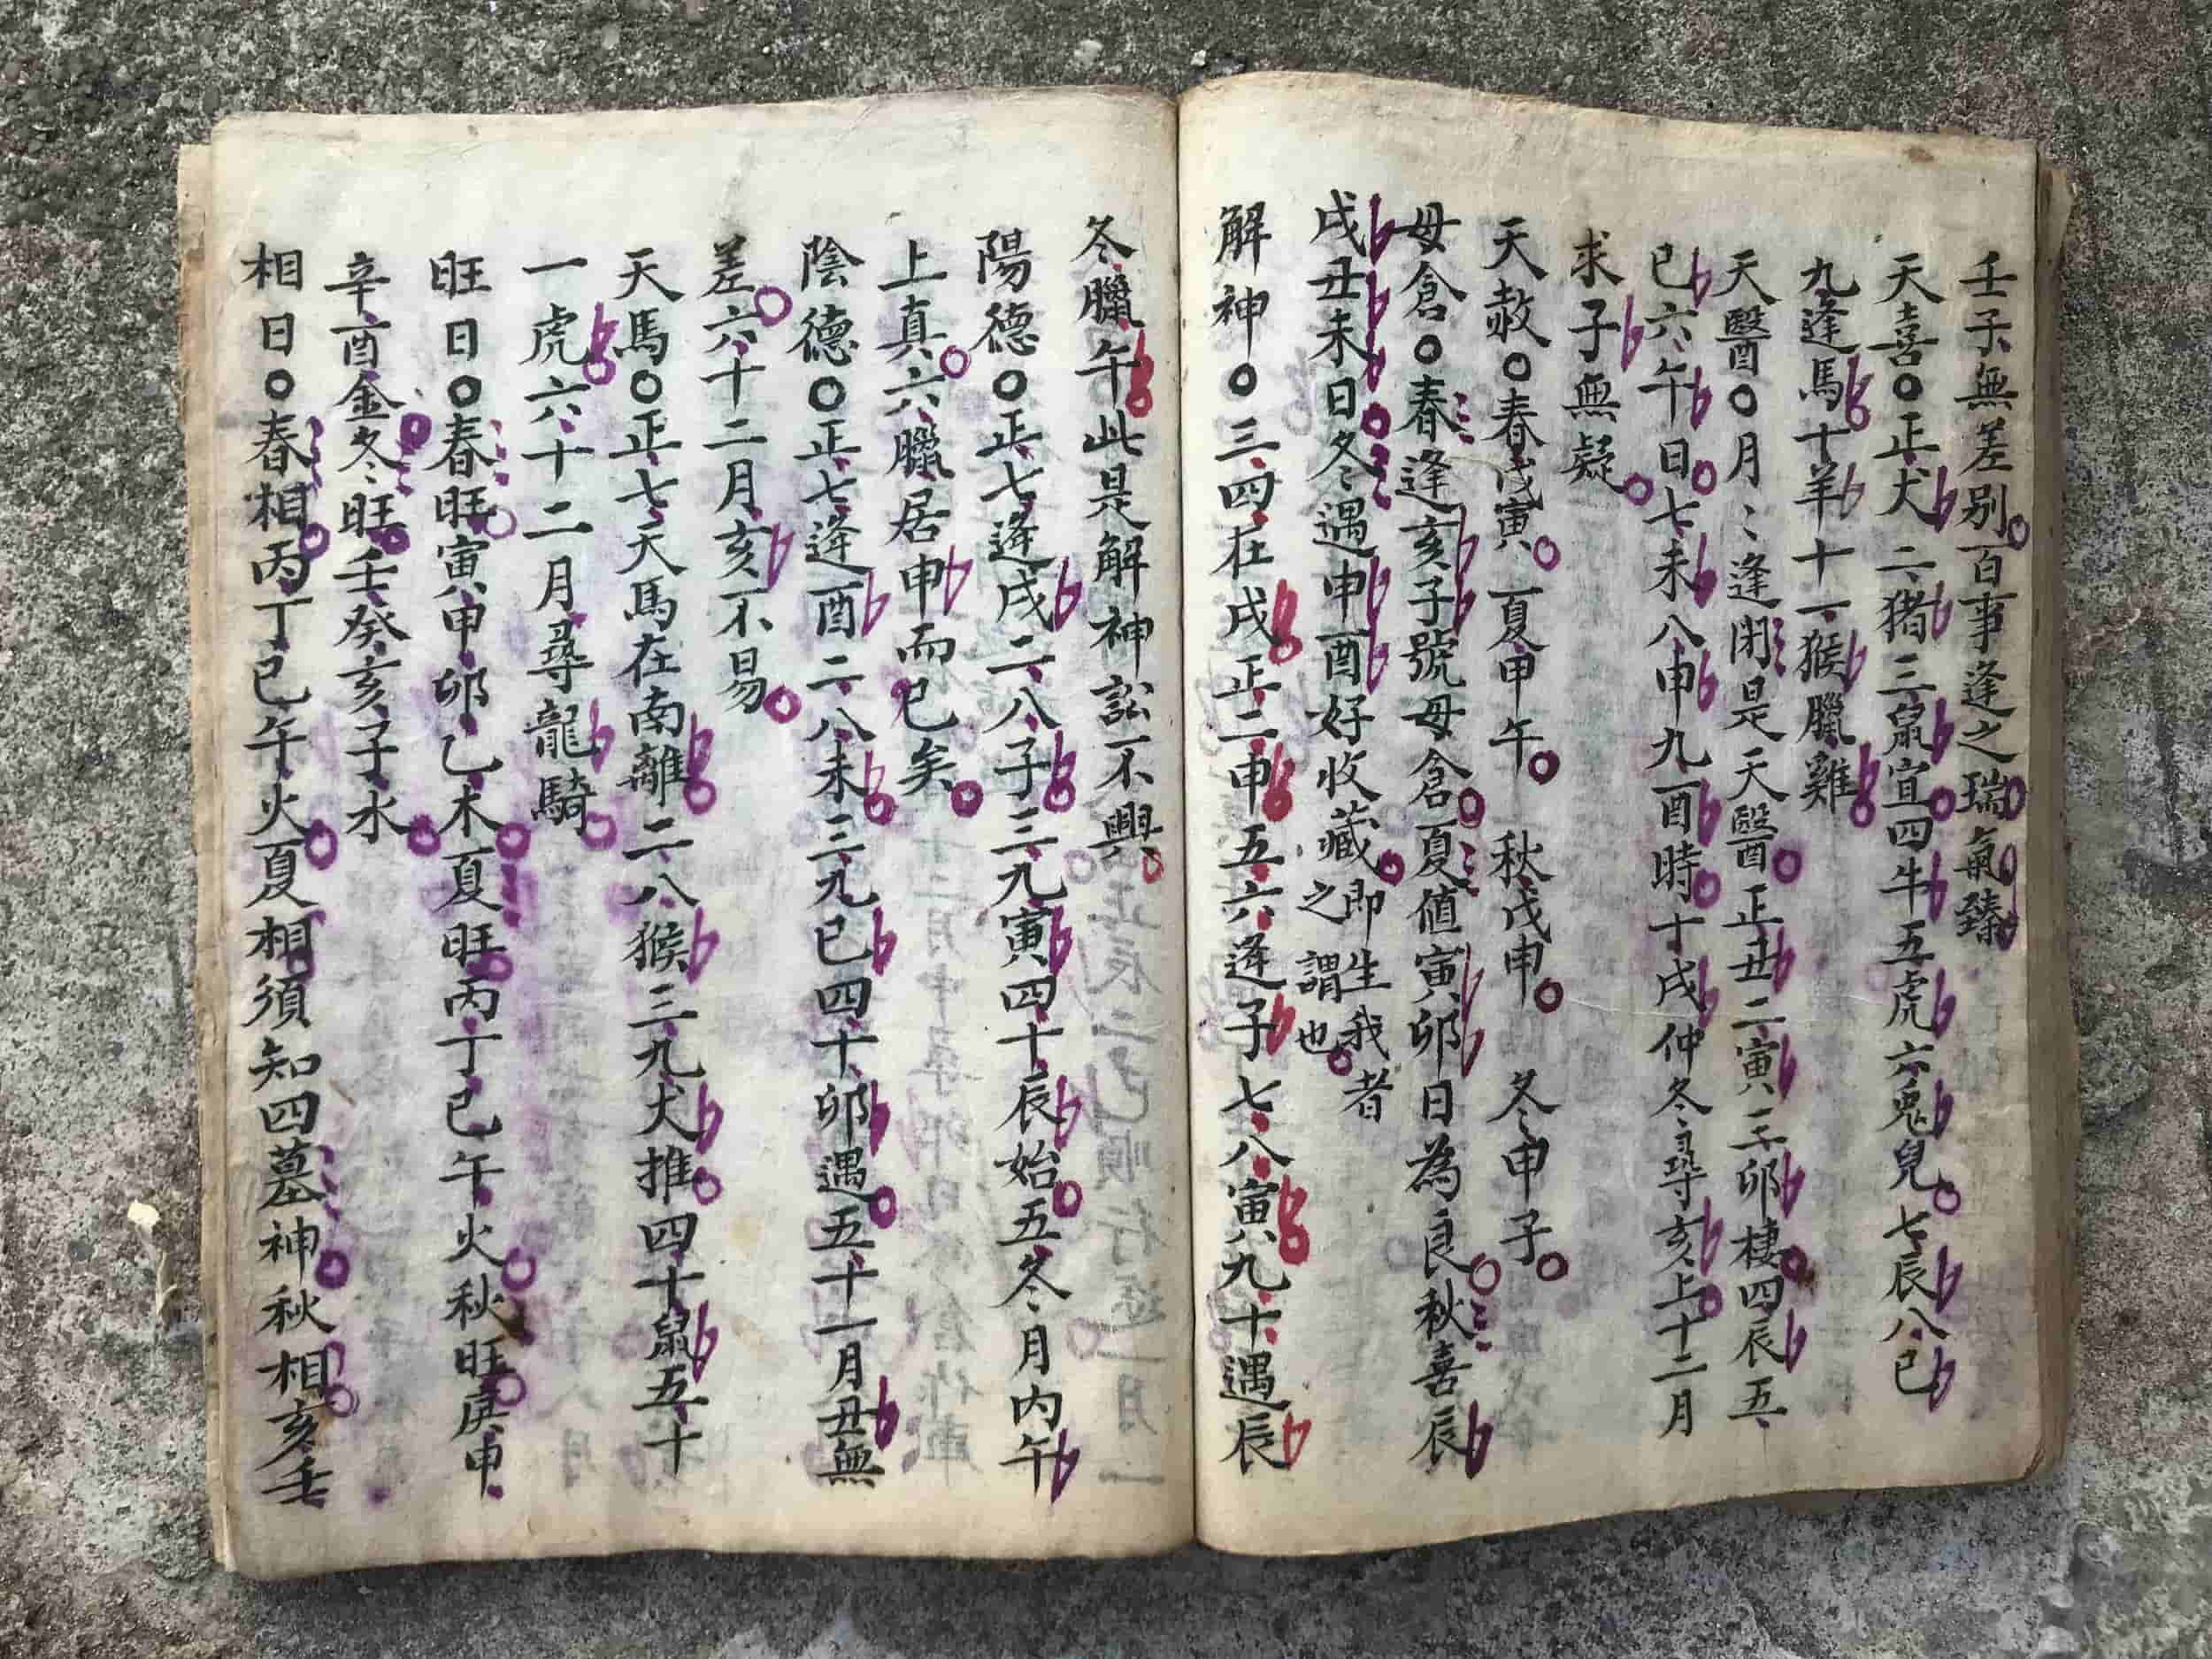 壬子無差别百事逢之瑞氣臻
天喜○正犬二猪三鼠宜四牛五虎六兎兒七辰八巳
九逢馬十羊十一猴臘雞
天醫○月〻逢閉是天醫正丑二寅三卯棲四辰五
巳六午日七未八申九酉時十戌仲冬尋亥上十二月
求子無疑
天赦○春戊寅夏甲午 秋戊申 冬甲子
母倉○春逢亥子號母倉夏值寅卯日為良秋喜辰
戌丑未日冬遇申酉好收藏即生我者
之謂也
解神○三四在戌正二申五六逢子七八寅九十遇辰
冬臘午此是解神訟不興
陽德○正七逢戌二八子三九寅四十辰始五冬月内午
上真六臘居申而已矣
陰德○正七逢酉二八未三九巳四十卯遇五十一月丑無
差六十二月亥不易
天馬○正七天馬在南離二八猴三九犬推四十鼠五十
一虎六十二月尋龍騎
旺日○春旺寅甲卯乙木夏旺丙丁巳午火秋旺庚申
辛酉金冬旺壬癸亥子水
相日○春相丙丁巳午火夏相須知四墓神秋相亥壬